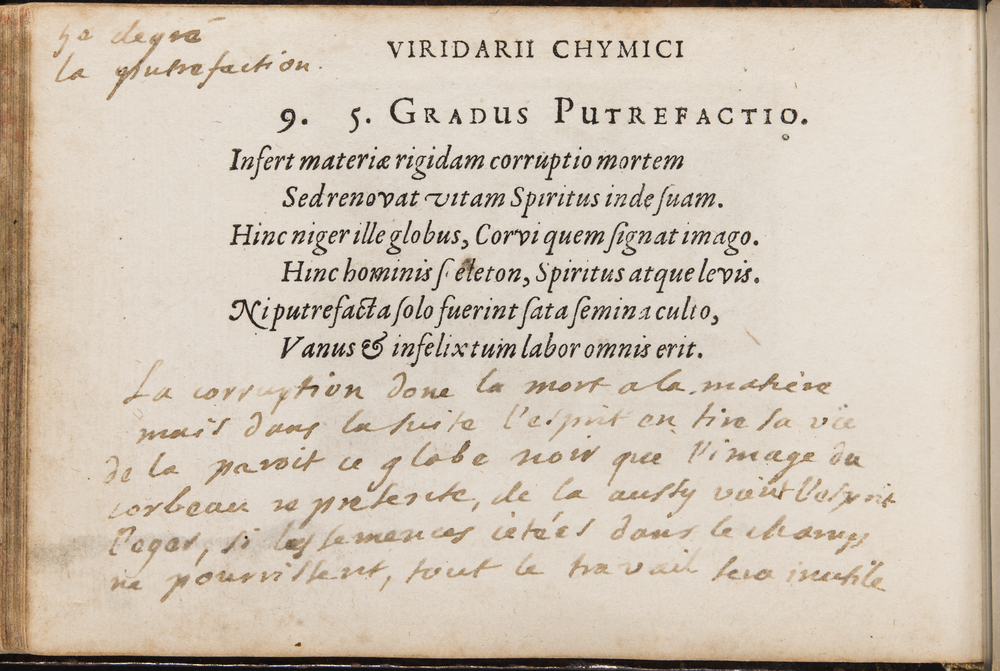 5e degré
la putrefaction.
VIRIDARII CHYMICI
9. 5. GRADUS PUTREFACTIO.
Infert materiæ rigidam corruptio mortem
Sed renovat vitam Spiritus inde ſuam.
Hinc niger ille globus, Corvi quem ſignat imago.
Hinc hominis ſceleton, Spiritus atque levis.
Ni putrefacta ſolo fuerint ſata ſemina culto,
Vanus & infelix tum labor omnis erit.
La corruption done la mort a la matiére
mais dans la suite l'esprit en tire sa vie
de la paroit ce globe noir que l'image du
corbeau represente, de la aussy vient l'esprit
leger, si les semences jetées dans le champ
ne pourrissent, tout le travail sera inutile